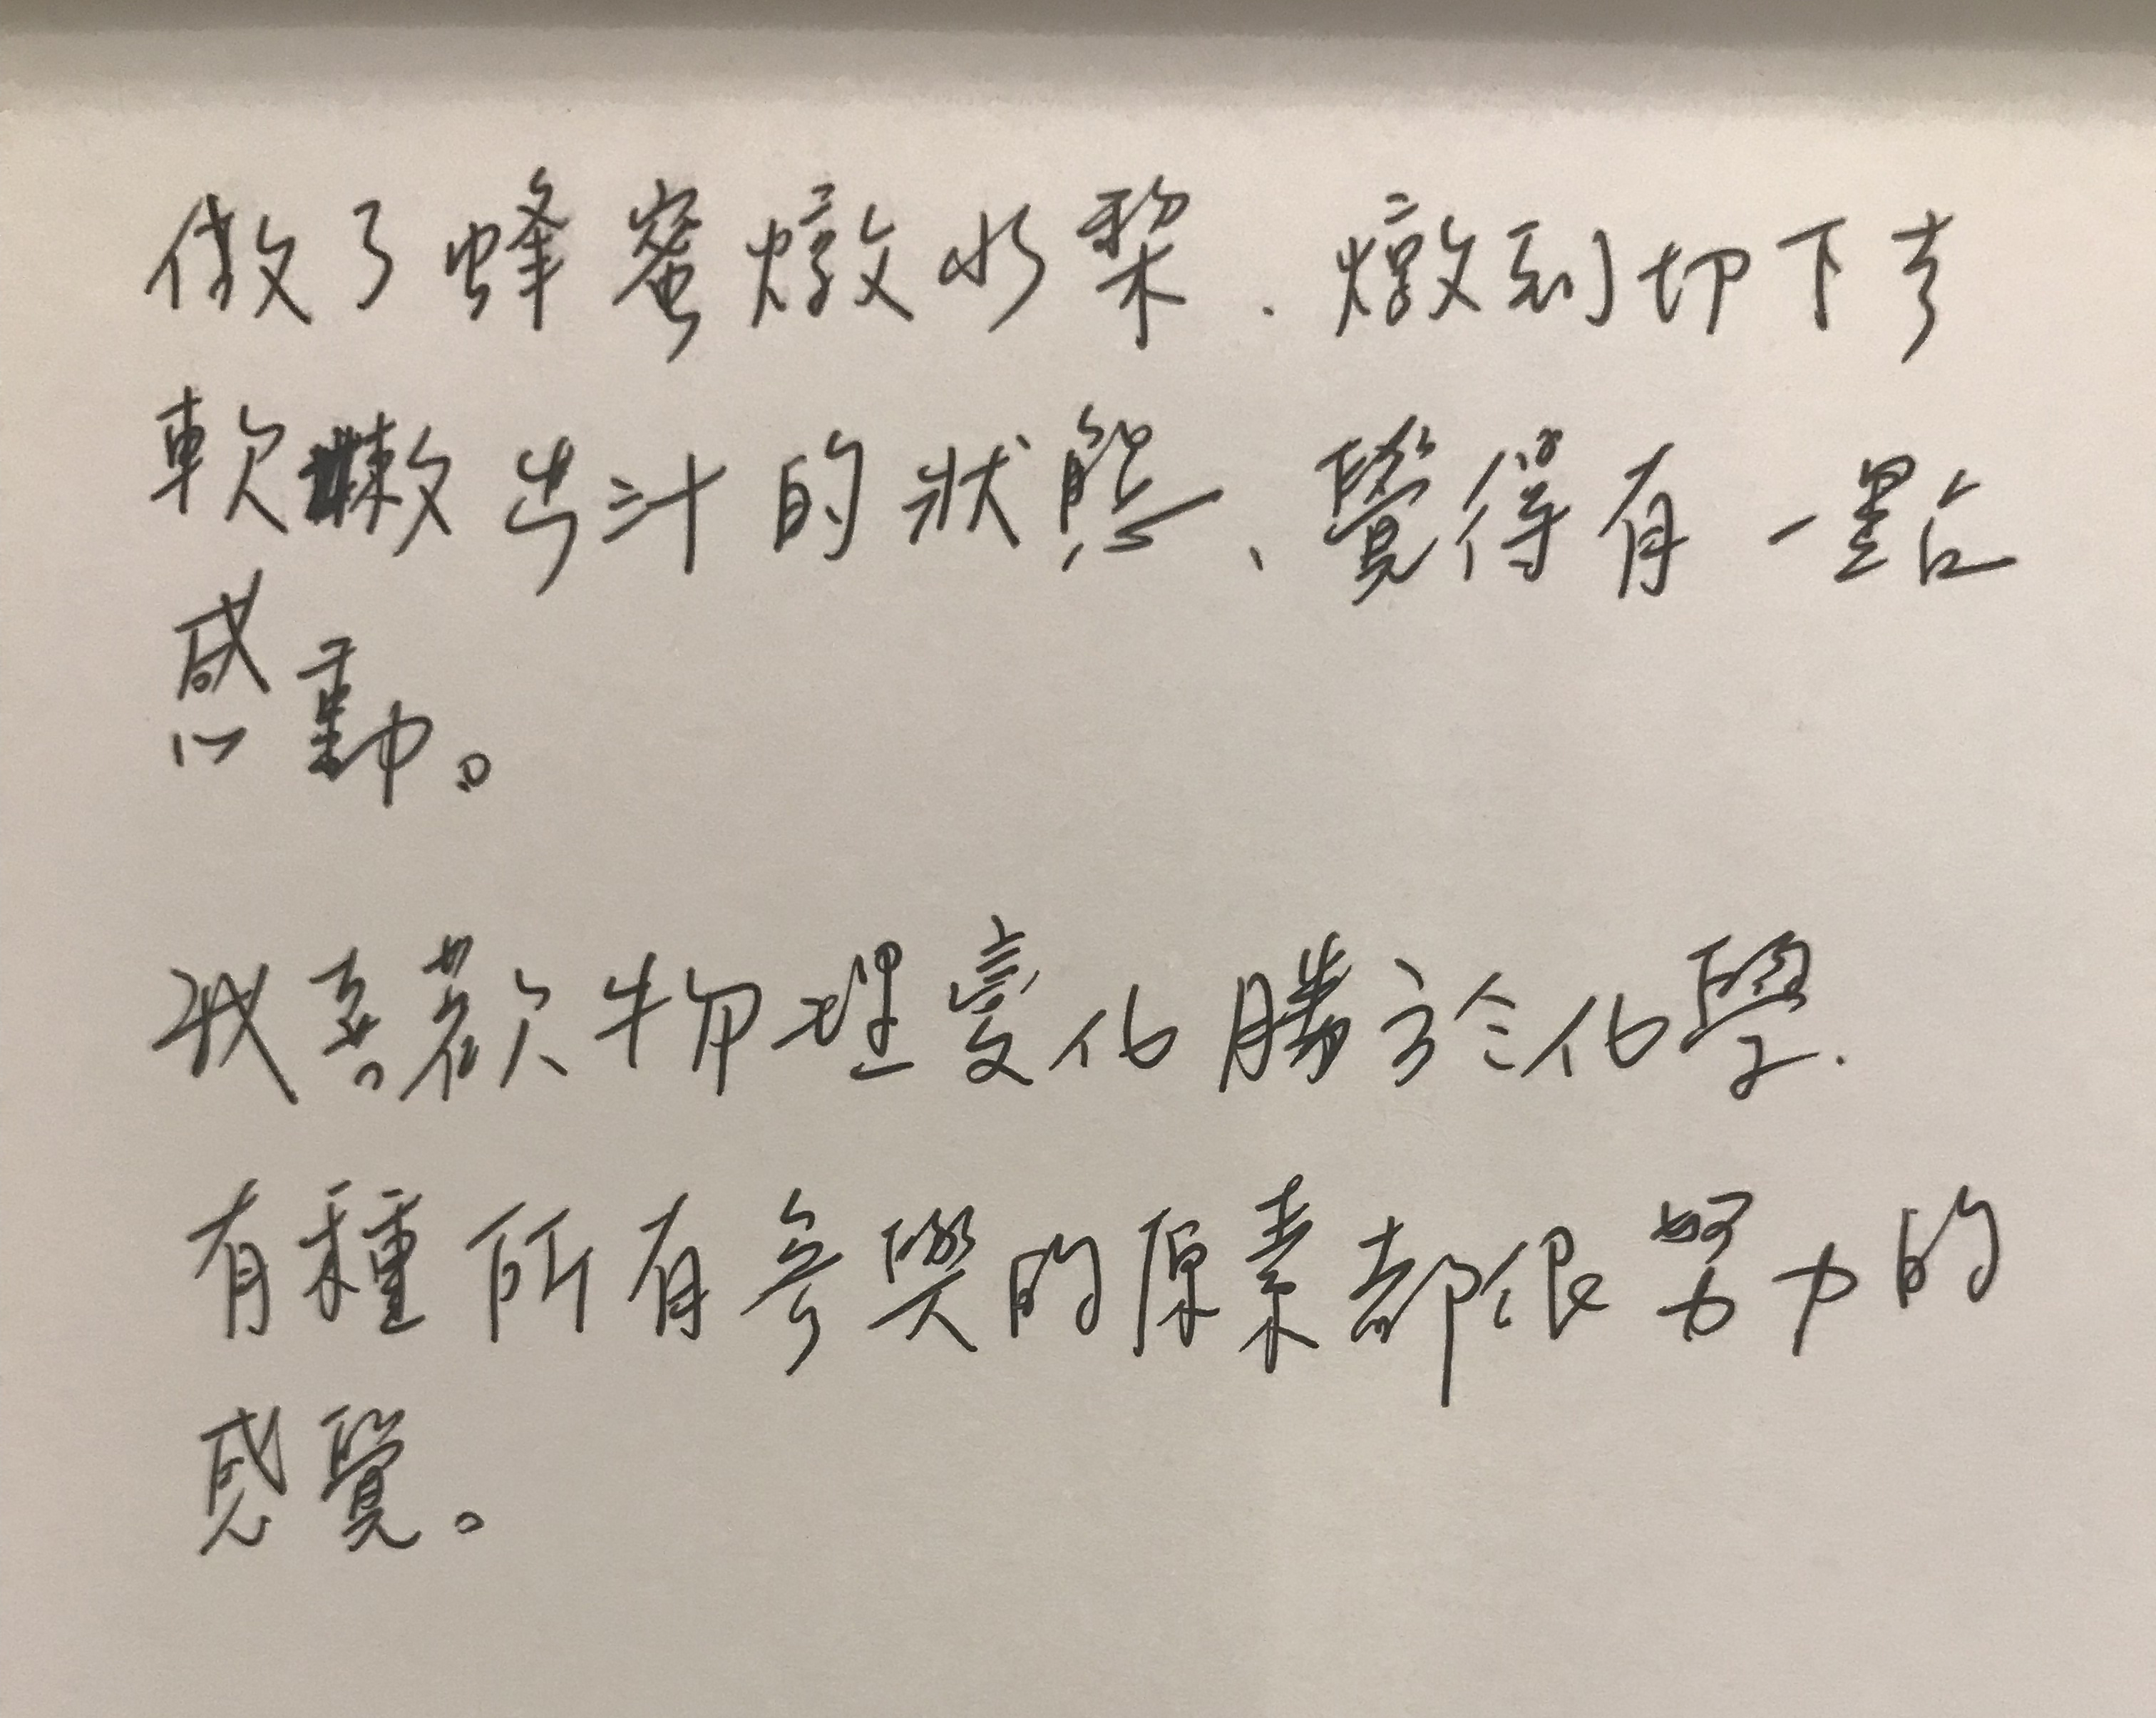 做了蜂蜜燉水梨、燉到切下去
軟嫩出汁的狀態、覺得有一點
感動。
我喜歡物理變化勝於化學.
有種所有參與的原素都很努力的
感覺。